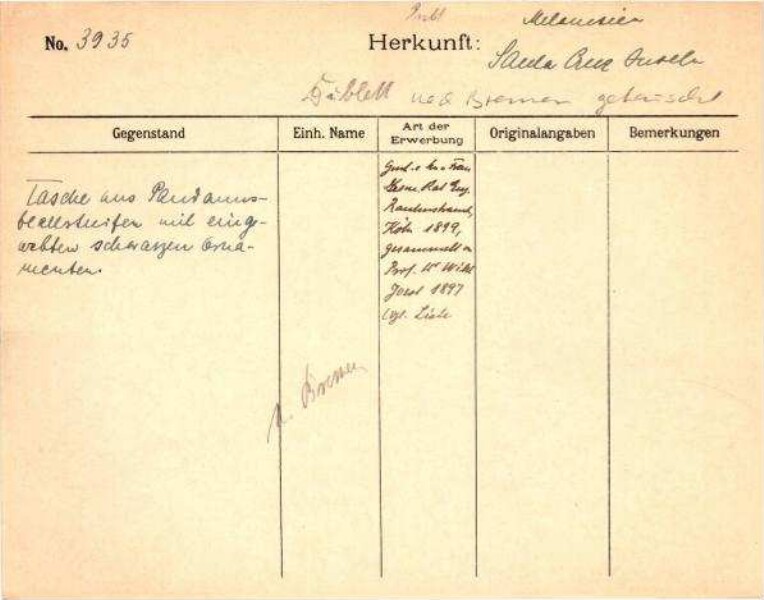 Publ
Melanesien
No. 3935 Herkunft: Santa Cruz Inseln
Dublett nach Bremen getauscht
Gegenstand Einh. Name Art der Erwerbung Originalangaben Bemerkungen
Tasche aus Pandanus-
blattstreifen mit einge-
webten schwarzen Orna-
menten.
Frau
Rat Eug.
Rautenstrauch,
Köln 1899,
gesammelt v.
Prof. Dr Wilh
Joest 1897
vgl. Liste
n. Bremen